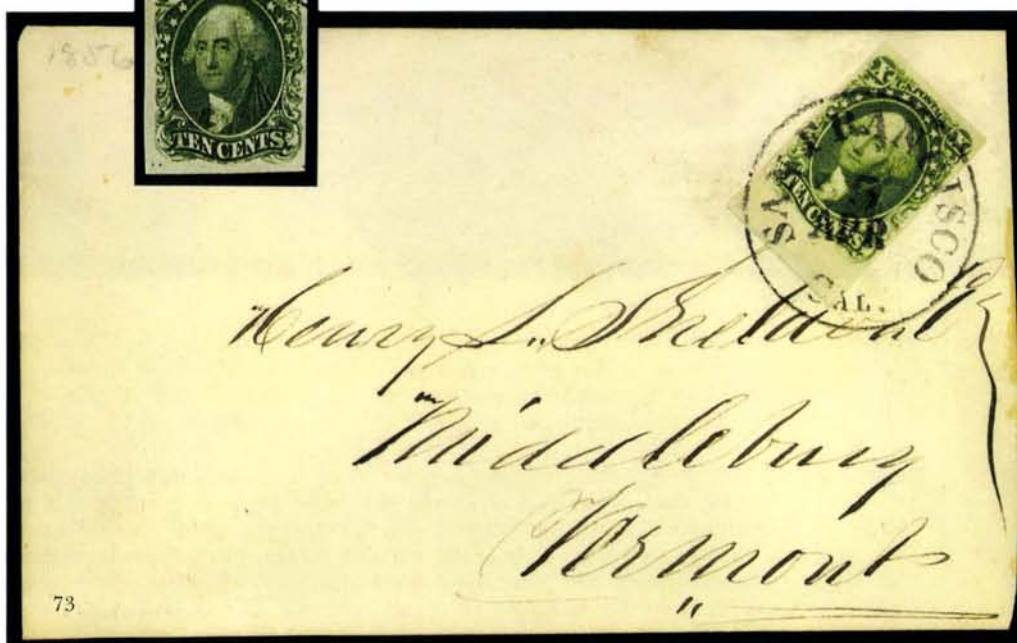 1856
TEN CENTS
SAN FRANCISCO
5
APR
CAL.
TEN CENTS
Henry L. Sheldon
Middlebury
Vermont
73